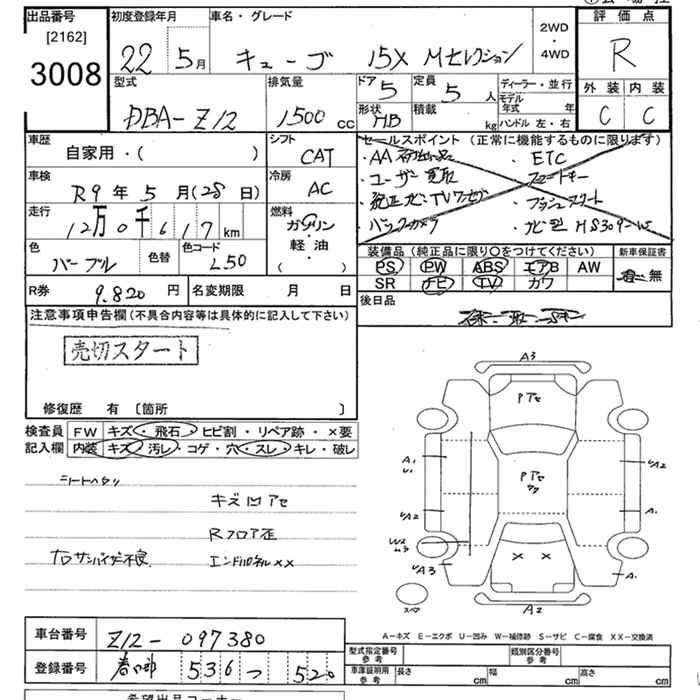 出品番号
[2162]
3008
初度登録年月
22年5月
車名・グレード
キューブ 15X Mセレクション
2WD
・
4WD
評価点
R
外装 内装
C C
型式
DBA-Z12
排気量
1500 cc
ドア 5
定員 5 人
形状 HB
積載 kg
ディーラー・並行
モデル年式 年
ハンドル 左・右
車歴
自家用・( )
シフト
CAT
車検
R9年5月(28日)
冷房
AC
走行
12万0千617km
燃料
ガソリン
・
軽・油
・
( )
色
パープル
色替
色コード
L50
セールスポイント(正常に機能するものに限ります)
・ETC
・ユーザー買取
・スマートキー
・プッシュスタート
・バックカメラ
装備品(純正品に限り○をつけてください)
PS PW ABS エアB AW
SR ナビ TV カワ
新車保証書
有・無
R券 9,820円
名変期限 月 日
後日品
注意事項申告欄(不具合内容等は具体的に記入して下さい)
売切スタート
修復歴 有 〔箇所 〕
検査員
記入欄
FW キズ・飛石・ヒビ割・リペア跡・×要
内装 キズ・汚レ・コゲ・穴・スレ・キレ・破レ
シートヘタリ
キズ凹アセ
Rフロア歪
運サンバイザー不良
エンドパネル××
A3
Pアセ
A1
U1
UA2
Pアセ
UA2
A1
W2
U3
UA3
× ×
A1
スペア
A2
A-キズ E-エクボ U-凹み W-補修跡 S-サビ C-腐食 XX-交換済
車台番号 Z12-097380
登録番号 536つ520
型式指定番号
参考
類別区分番号
参考
車庫証明用
参考
長さ cm 幅 cm 高さ cm
希望出品コーナー